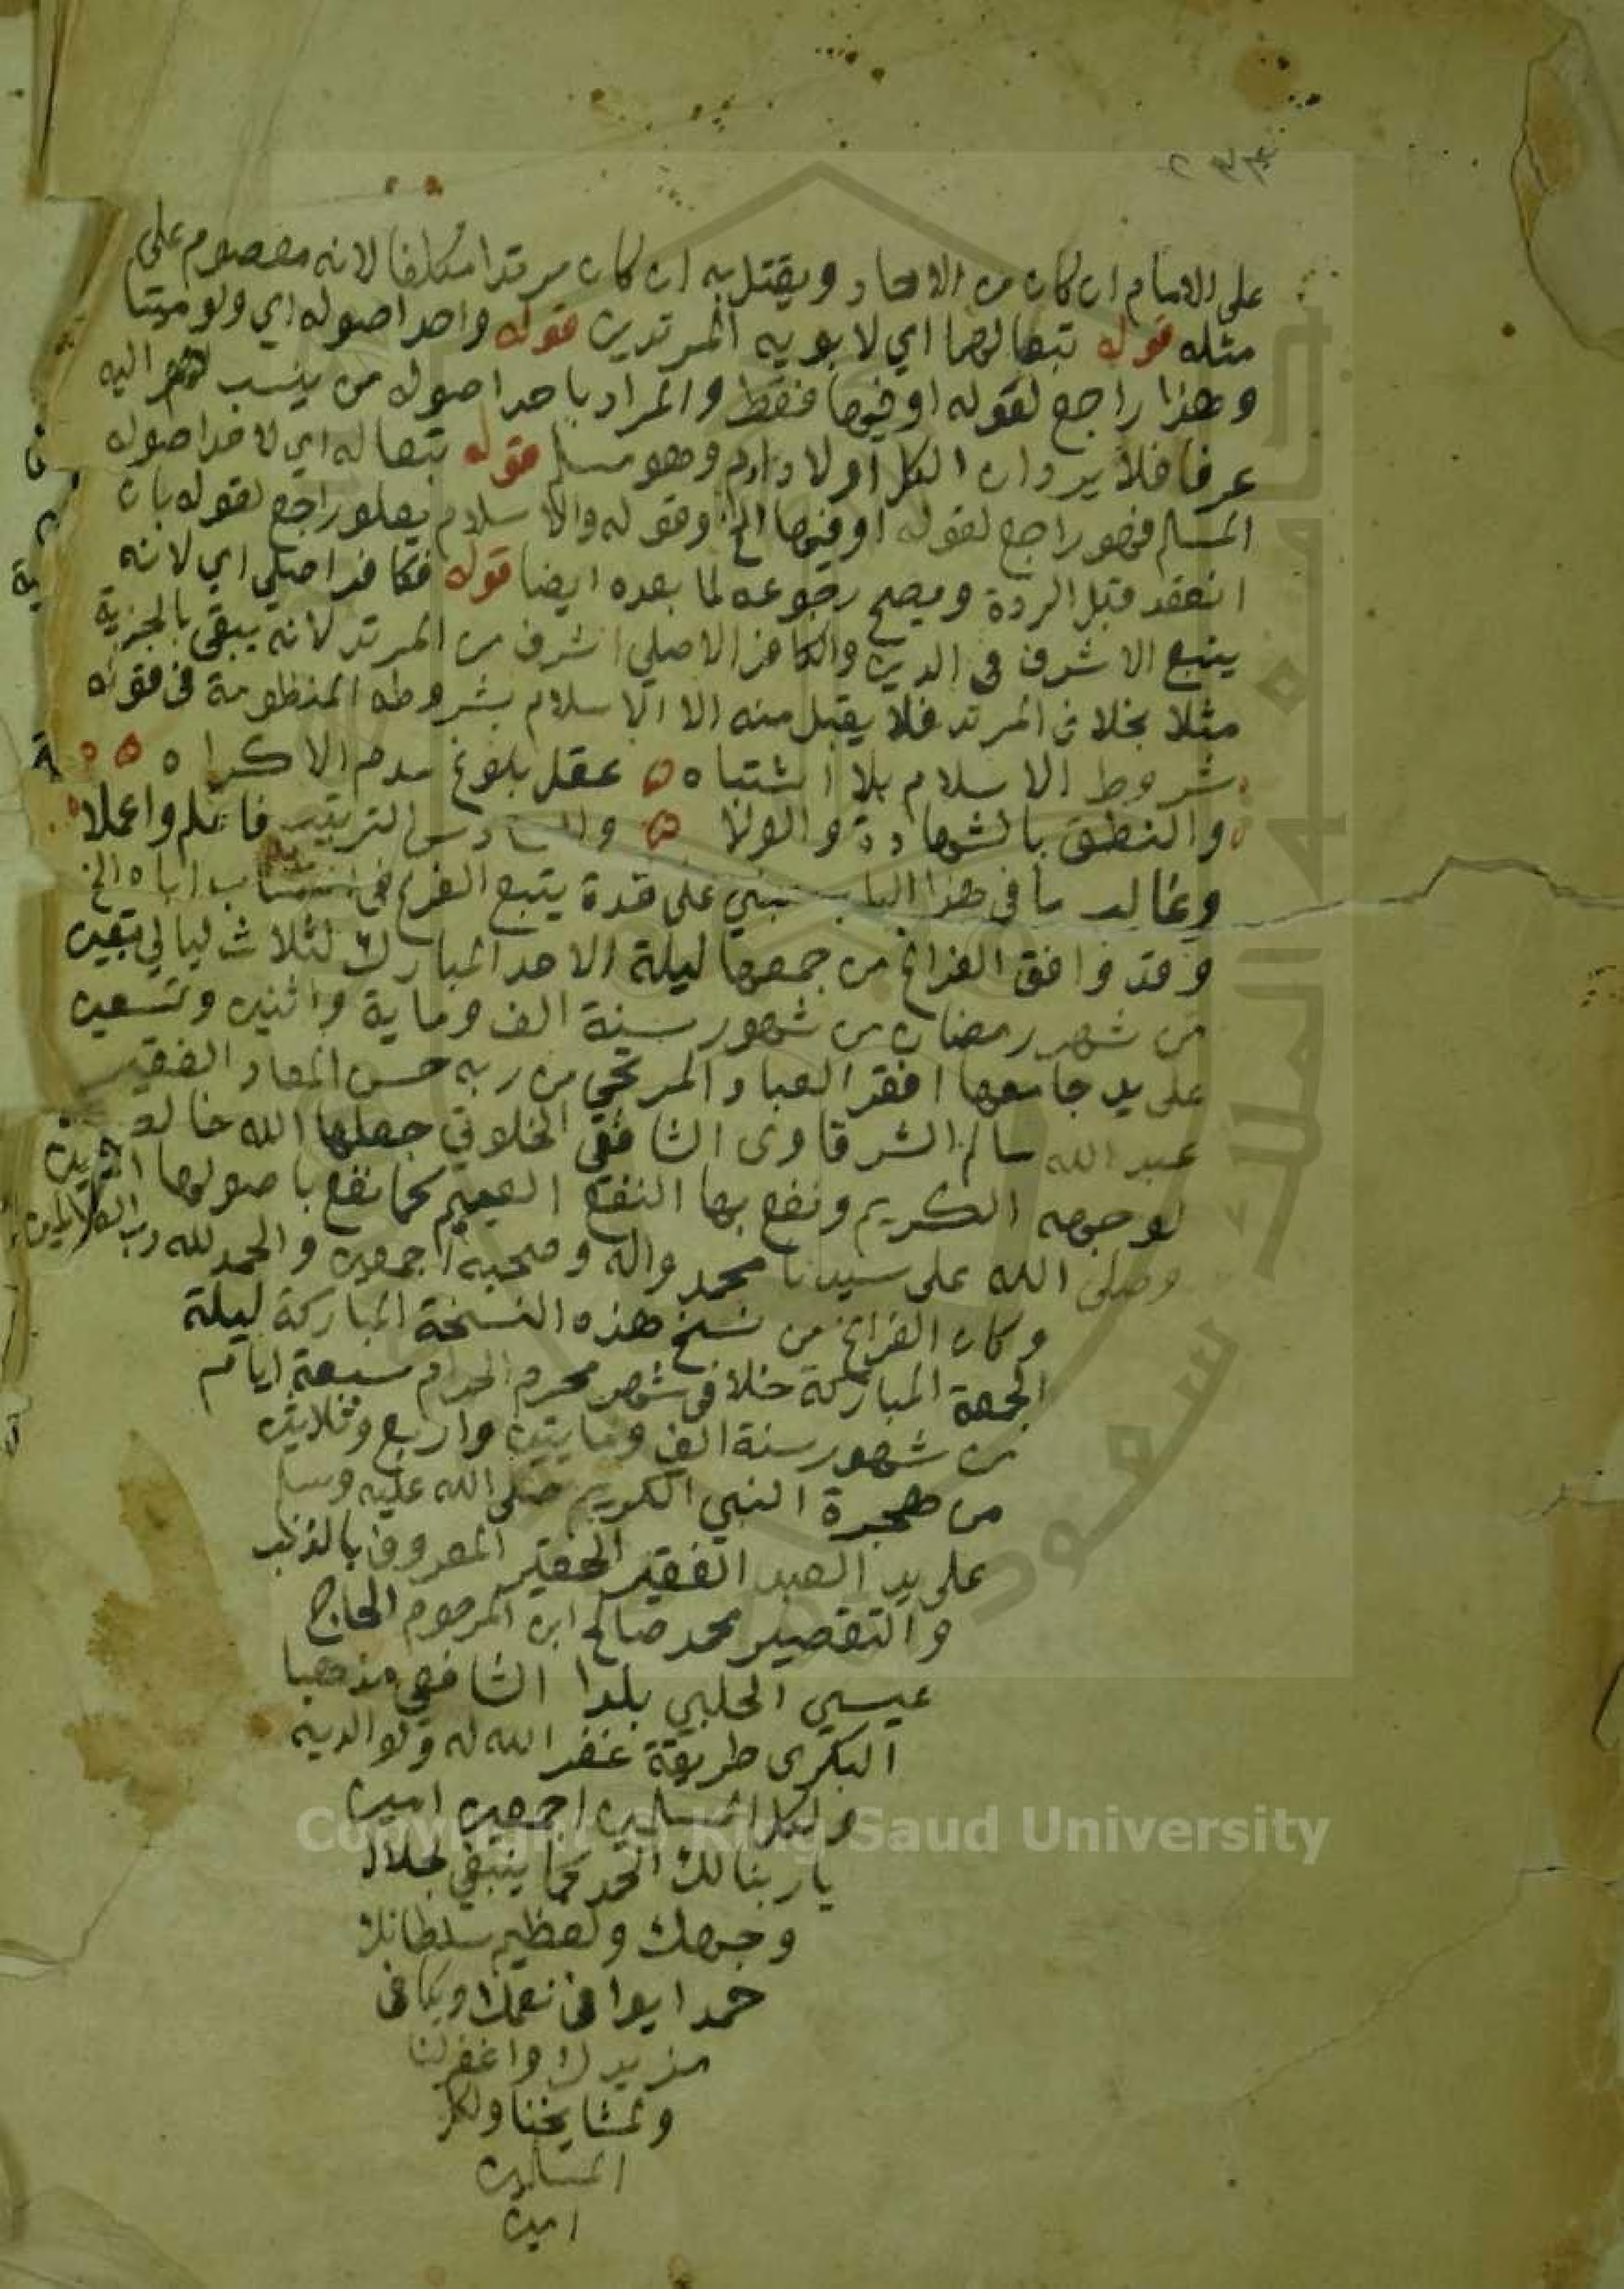 على الامام ان كان من الاحاد ويقتل به ان كان مرتدا مكلفا لانه معصوم على
مثله قوله تبعا لهما اي لابويه المرتدين قوله واحد اصوله اي ولو ميتا
وهذا راجع لقوله او فيها فقط والمراد باحد اصوله من ينسب اليه
عرفا فلا يرد ان الكل اولاد ادم وهو مسلم قوله تبعا له اي لاحد اصوله
المسلم فهو راجع لقوله او فيها الخ وقوله والاسلام يعلو راجع لقوله بان
انعقد قبل الردة ويصح رجوعه لما بعده ايضا قوله فكافر اصلي اي لانه
يتبع الاشرف في الدين والكافر الاصلي اشرف من المرتد لانه يبقى بالجزية
مثلا بخلاف المرتد فلا يقبل منه الا الاسلام بشروطه المنظومة في قوله
شروط الاسلام بلا اشتباه عقل بلوغ عدم الاكراه
والنطق بالشهادة والولا والسادس الترتيب فاعلم واعملا
وغالب ما في هذا الباب مبني على قدة يتبع الفرع في انتساب اباه الخ
وقد وافق الفراغ من جمعها ليلة الاحد المبارك لثلاث ليالي بقين
من شهر رمضان من شهور سنة الف وماية واثنين وتسعين
على يد جامعها افقر العباد المرتجي من ربه حسن المعاد الفقير
عبد الله سالم الشرقاوى الشافعي الخلوتي جعلها الله خالصة
لوجهه الكريم ونفع بها النفع العميم كما نفع باصولها امين
وصلى الله على سيدنا محمد واله وصحبه اجمعين والحمد لله رب العالمين
وكان الفراغ من نسخ هذه النسخة المباركة ليلة
الجمعة المباركة خلا في شهر محرم الحرام سبعة ايام
من شهور سنة الف ومايتين واربع وثلاثين
من هجرة النبي الكريم صلى الله عليه وسلم
على يد العبد الفقير الحقير المعروف بالذنب
والتقصير محمد صالح ابن المرحوم الحاج
عيسي الحلبي بلدا الشافعي مذهبا
البكرى طريقة غفر الله له ولوالديه
ولكل المسلمين اجمعين امين
يا ربنا لك الحمد كما ينبغي لجلال
وجهك ولعظيم سلطانك
حمدا يوافى نعمك ويكافى
مزيدك واغفر لنا
ولمشايخنا ولكل
المسلمين
امين
Copyright © King Saud University